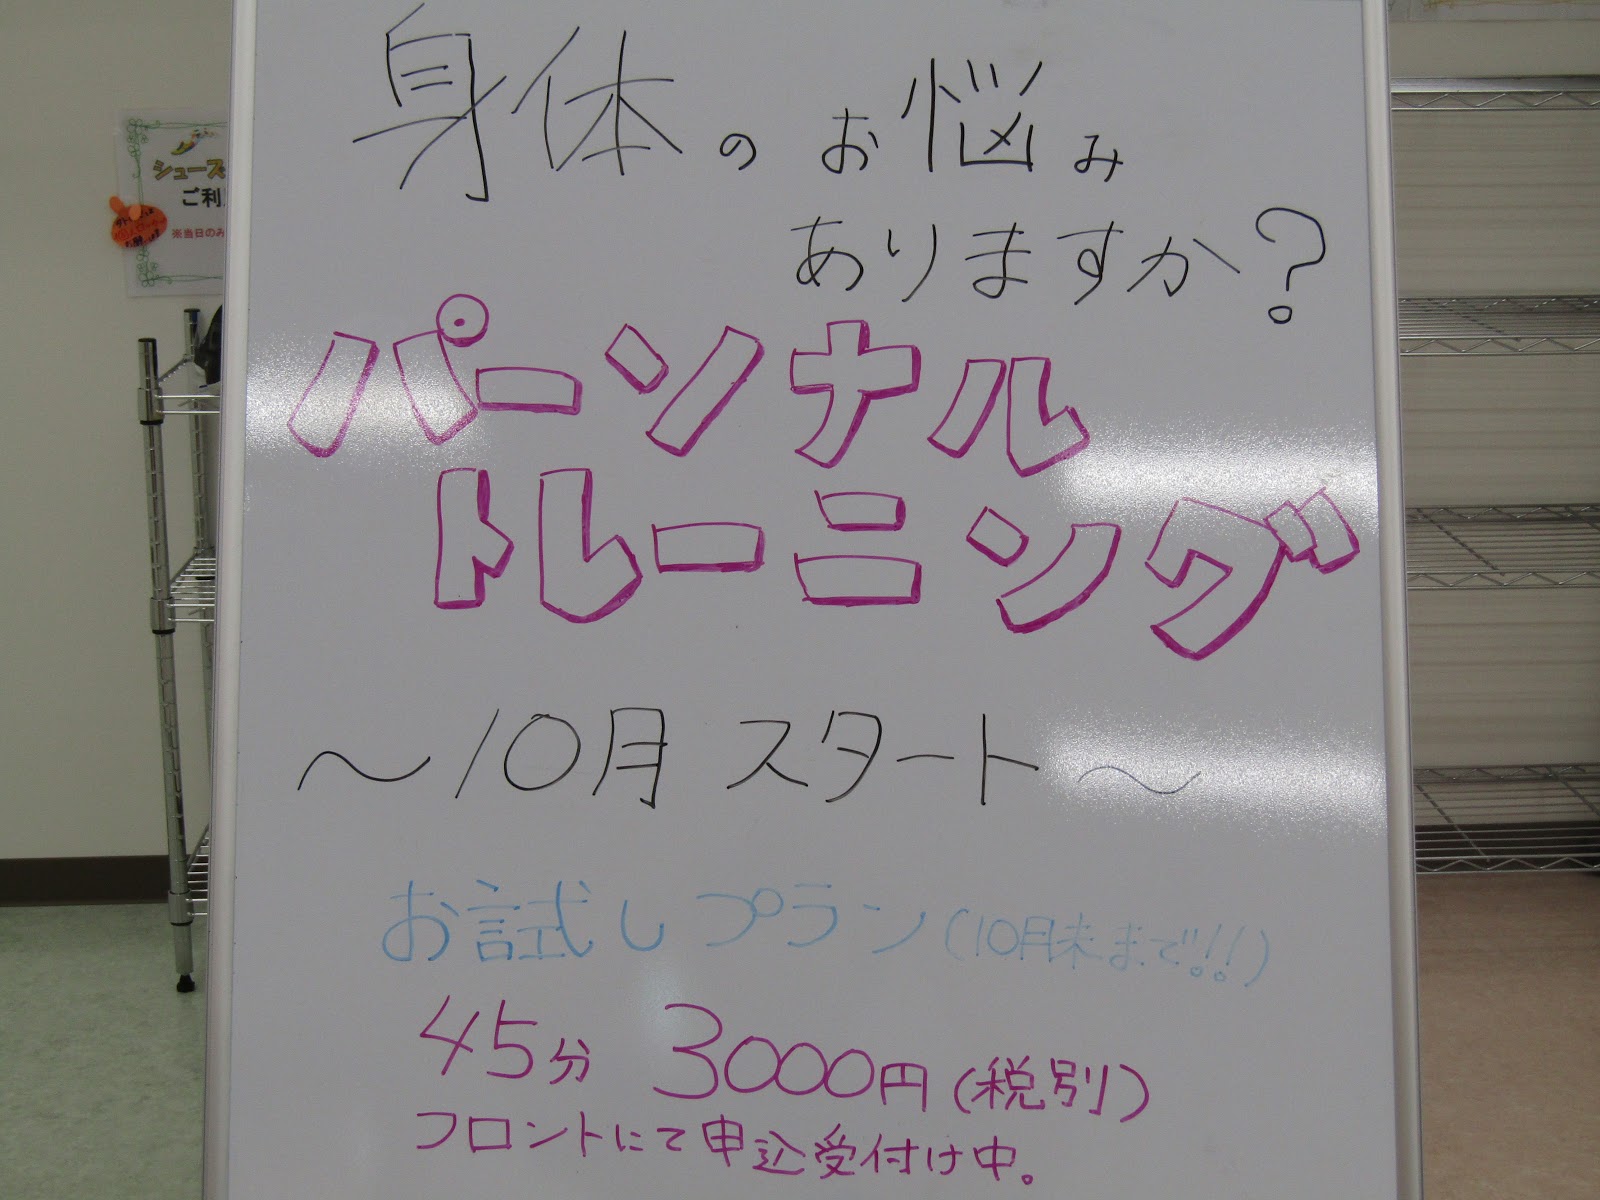 身体のお悩み
ありますか?
パーソナル
トレーニング
〜10月 スタート〜
お試しプラン(10月末まで!!)
45分 3000円(税別)
フロントにて申込受付け中。
シューズ
ご利
※当日のみ